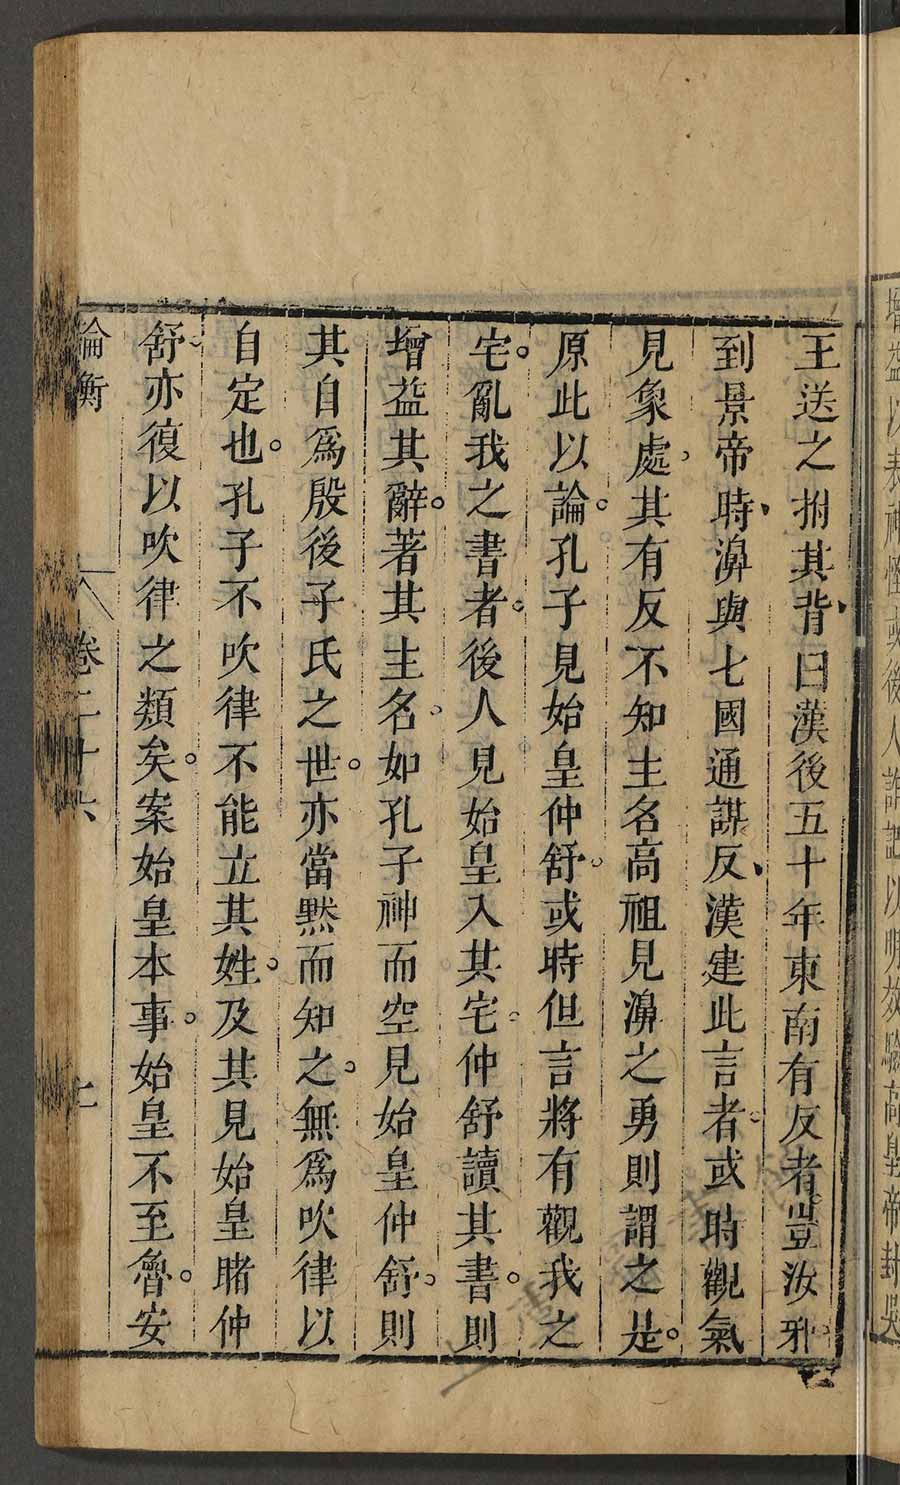 增益以表神怪或後人詐記以明效驗高皇帝封吳
王送之拊其背曰漢後五十年東南有反者豈汝邪
到景帝時濞與七國通謀反漢建此言者或時觀氣
見象處其有反不知主名高祖見濞之勇則謂之是
原此以論孔子見始皇仲舒或時但言將有觀我之
宅亂我之書者後人見始皇入其宅仲舒讀其書則
增益其辭著其主名如孔子神而空見始皇仲舒則
其自爲殷後子氏之世亦當默而知之無爲吹律以
自定也孔子不吹律不能立其姓及其見始皇睹仲
舒亦復以吹律之類矣案始皇本事始皇不至魯安
論衡 卷二十六